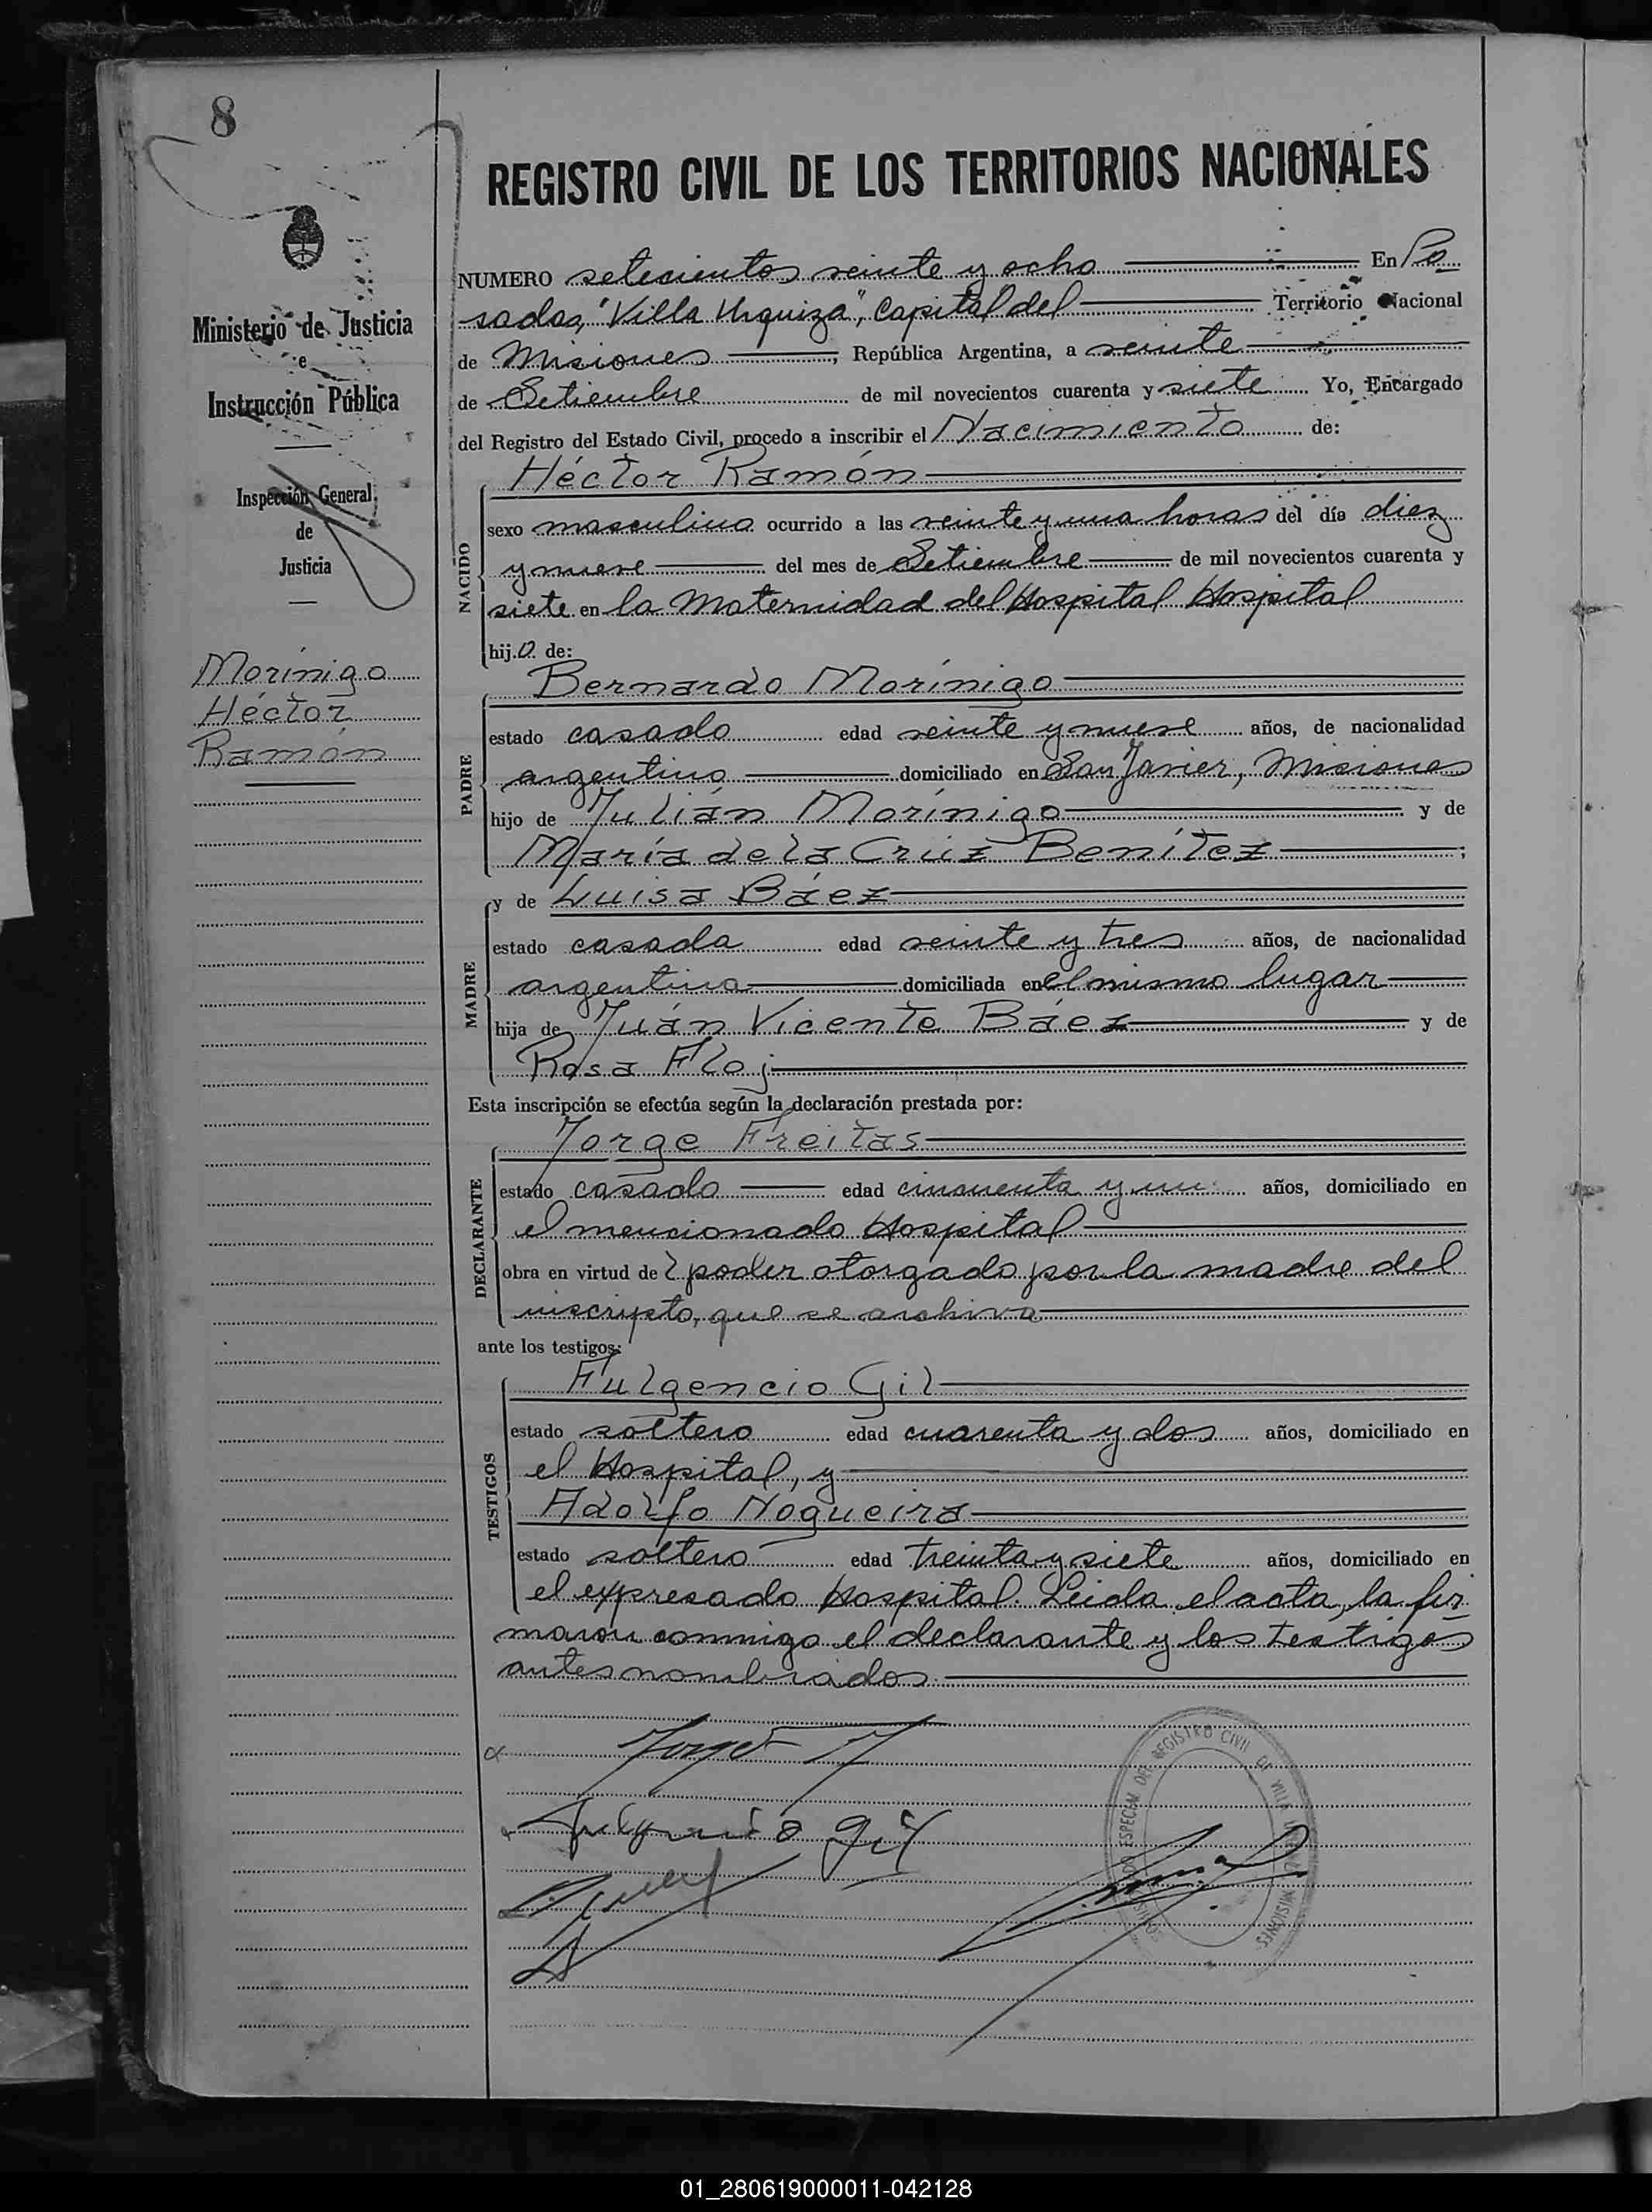 8
Ministerio de Justicia
e
Instrucción Pública
Inspección General
de
Justicia
Morínigo
Héctor
Ramón
REGISTRO CIVIL DE LOS TERRITORIOS NACIONALES
NUMERO setecientos veinte y ocho En Po
sadas, "Villa Urquiza", Capital del Territorio Nacional
de Misiones, República Argentina, a veinte
de Setiembre de mil novecientos cuarenta y siete Yo, Encargado
del Registro del Estado Civil, procedo a inscribir el Nacimiento de:
NACIDO
Héctor Ramón
sexo masculino ocurrido a las veinte y una horas del día diez
y nueve del mes de Setiembre de mil novecientos cuarenta y
siete en la Maternidad del Hospital Hospital
hijo de:
PADRE
Bernardo Morínigo
estado casado edad veinte y nueve años, de nacionalidad
argentino domiciliado en San Javier, Misiones
hijo de Julián Morínigo y de
María de la Cruz Benítez;
MADRE
y de Luisa Báez
estado casada edad veinte y tres años, de nacionalidad
argentina domiciliada en el mismo lugar
hija de Juán Vicente Báez y de
Rosa Floj
Esta inscripción se efectúa según la declaración prestada por:
DECLARANTE
Jorge Freitas
estado casado edad cincuenta y un años, domiciliado en
el mencionado Hospital
obra en virtud de l poder otorgado por la madre del
inscripto, que se archiva
ante los testigos:
TESTIGOS
Fulgencio Gil
estado soltero edad cuarenta y dos años, domiciliado en
el Hospital, y
Adolfo Nogueira
estado soltero edad treinta y siete años, domiciliado en
el expresado Hospital. Leida el acta, la fir
maron conmigo el declarante y los testigos
antes nombrados.
Jorge
Fulgencio Gil
REGISTRO CIVIL DE VILLA
ESPECIAL DEL
MISIONES
01_280619000011-042128